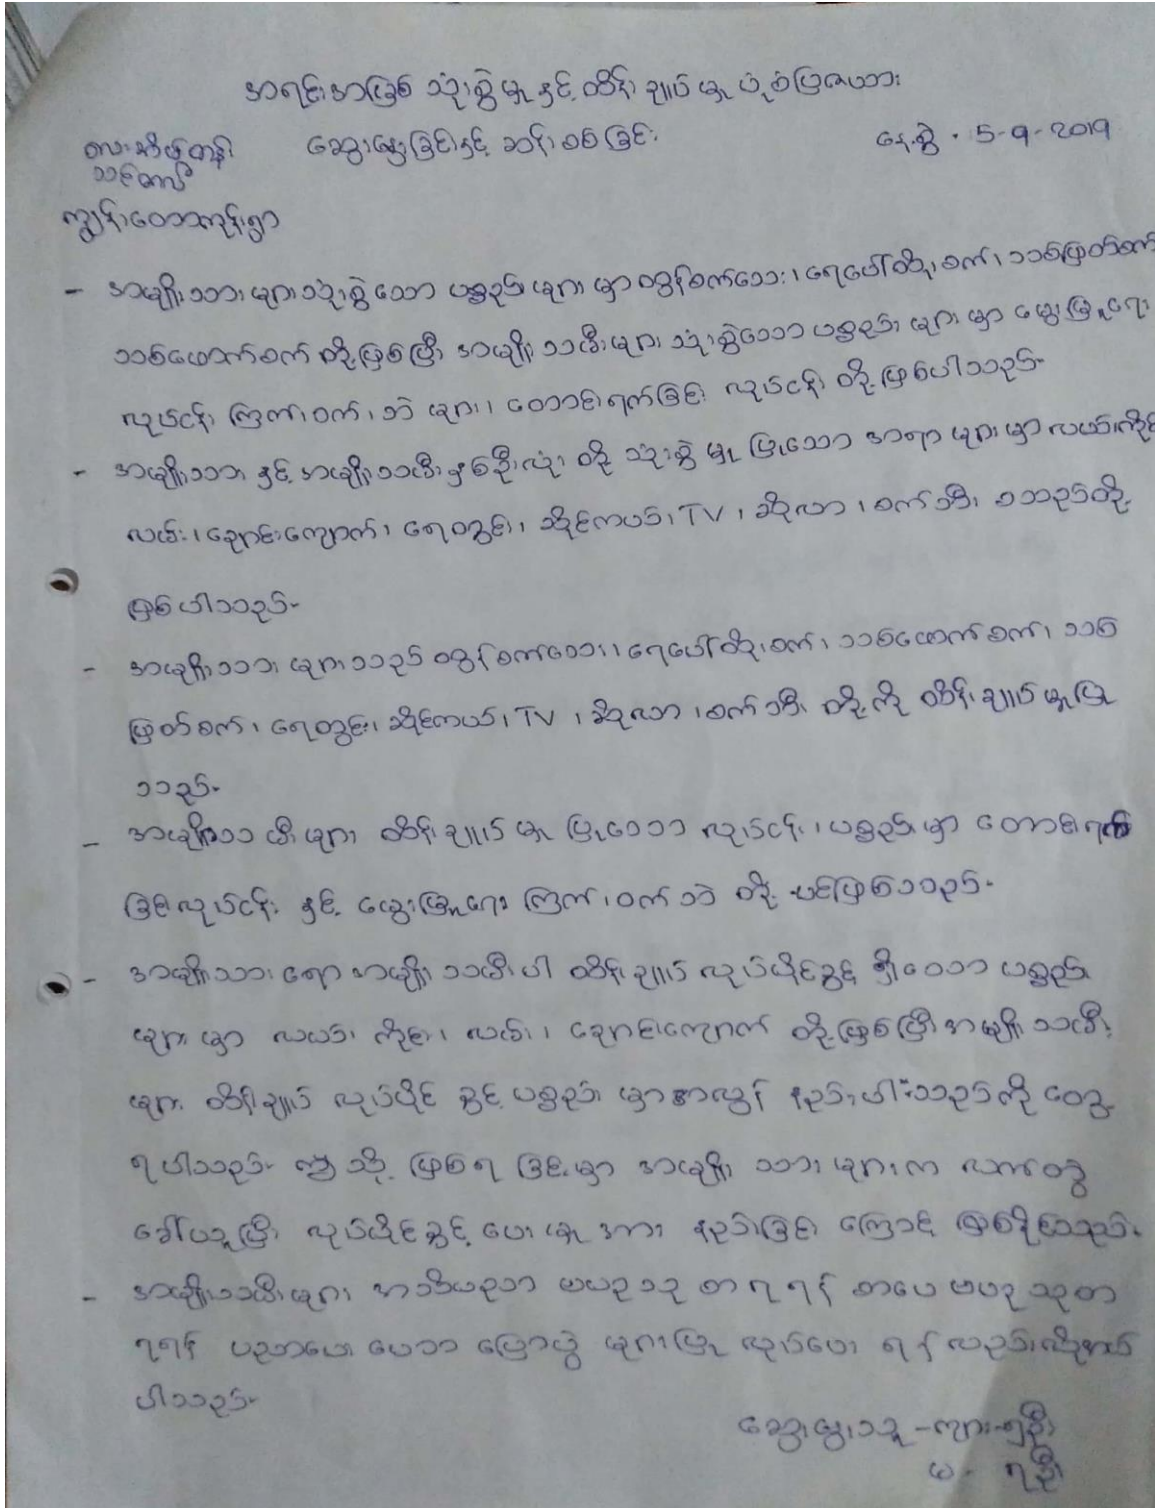 အရင်းအမြစ် သုံးစွဲမှု နှင့် ထိန်းချုပ်မှု ပုံစံပြဇယား
ဆွေးနွေးခြင်းနှင့် ဆန်းစစ်ခြင်း နေ့စွဲ - 5-9-2019
ကျွန်းတောကုန်းရွာ
- အမျိုးသားများသုံးစွဲသော ပစ္စည်းများမှာ ထွန်စက်လေး၊ ရေပေါ်ထိုးစက်၊ သစ်ဖြတ်စက်
သစ်ဖောက်စက် တို့ဖြစ်ပြီး အမျိုးသမီးများ သုံးစွဲသော ပစ္စည်းများမှာ မွေးမြူရေး
လုပ်ငန်း ကြက်၊ ဝက်၊ ဘဲ များ၊ တောင်းရက်ခြင်း လုပ်ငန်း တို့ဖြစ်ပါသည်။
- အမျိုးသား နှင့် အမျိုးသမီး နှစ်ဦးလုံး တို့ သုံးစွဲမှု ပြုသော အရာများမှာ လယ်၊ ကိုင်း
လမ်း၊ ချောင်းကျောက်၊ ရေတွင်း၊ ဆိုင်ကယ်၊ TV ၊ ဆိုလာ၊ စက်ဘီး စသည်တို့
ဖြစ်ပါသည်။
- အမျိုးသားများသည် ထွန်စက်လေး၊ ရေပေါ်ထိုးစက်၊ သစ်ဖောက်စက်၊ သစ်
ဖြတ်စက်၊ ရေတွင်း၊ ဆိုင်ကယ်၊ TV ၊ ဆိုလာ၊ စက်ဘီး တို့ကို ထိန်းချုပ်မှုပြု
သည်။
- အမျိုးသမီးများ ထိန်းချုပ်မှု ပြုသော လုပ်ငန်း၊ ပစ္စည်းမှာ တောင်းရက်
ခြင်းလုပ်ငန်း နှင့် မွေးမြူရေး ကြက်၊ ဝက် ဘဲ တို့ ပင်ဖြစ်သည်။
- အမျိုးသား ရော အမျိုးသမီးပါ ထိန်းချုပ် လုပ်ပိုင်ခွင့် ရှိသော ပစ္စည်း
များမှာ လယ်၊ ကိုင်း၊ လမ်း၊ ချောင်းကျောက် တို့ဖြစ်ပြီး အမျိုးသမီး
များ ထိန်းချုပ် လုပ်ပိုင်ခွင့် ပစ္စည်းမှာ အလွန် နည်းပါးသည်ကို တွေ့
ရပါသည်။ ဤသို့ ဖြစ်ရခြင်းမှာ အမျိုးသားများက လက်တွဲ
ခေါ်ယူပြီး လုပ်ပိုင်ခွင့် ပေးမှု အား နည်းခြင်း ကြောင့် ဖြစ်နိုင်သည်။
- အမျိုးသမီးများ အသိပညာ ဗဟုသုတ ရရန် စာပေ ဗဟုသုတ
ရရန် ပညာပေး ဟောပြောပွဲ များပြု လုပ်ပေး ရန် လည်းလိုအပ်
ပါသည်။
ဆွေးနွေးသူ - ကျား -
မ -